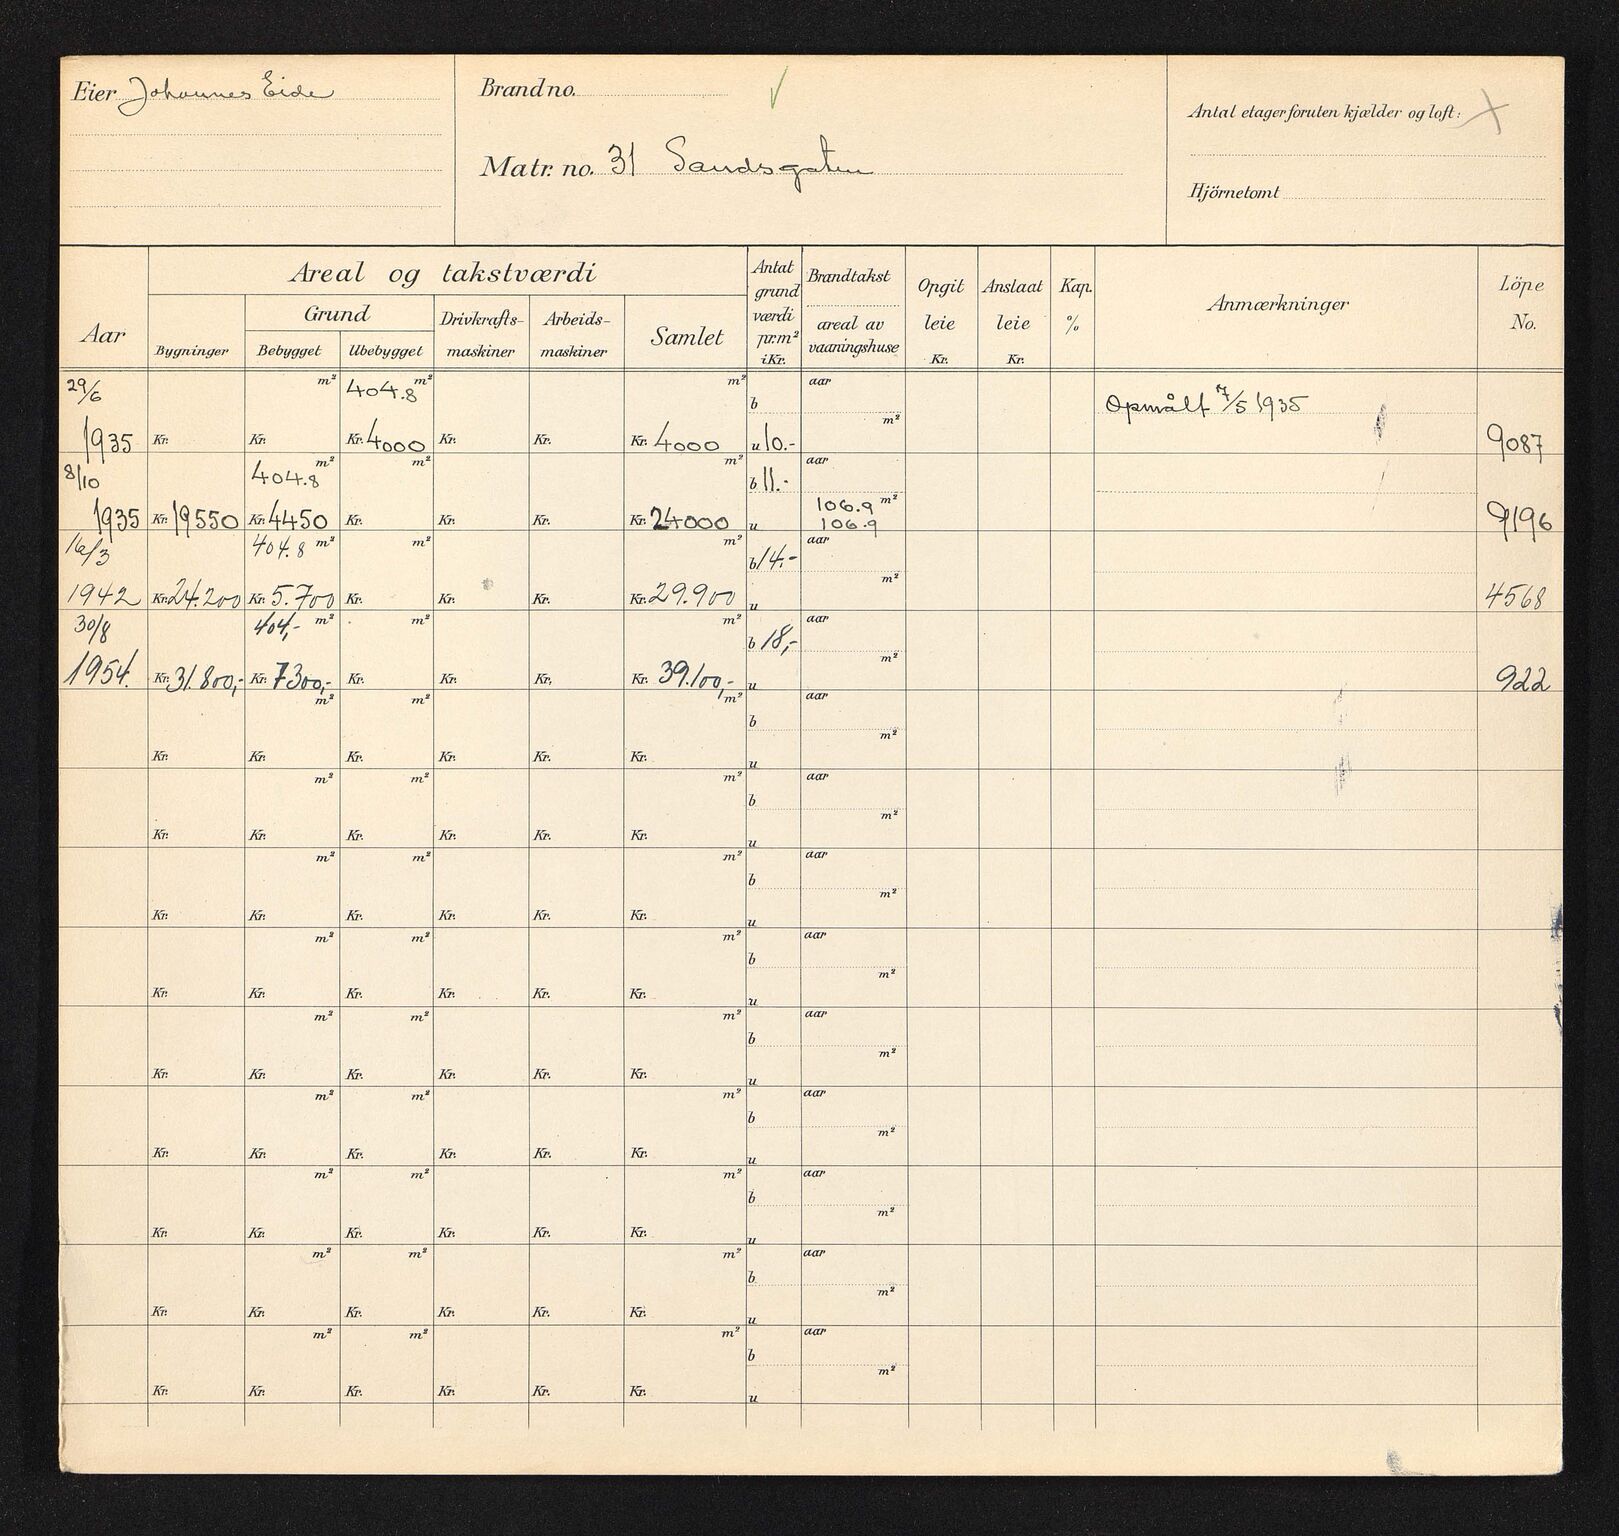 Eier Johannes Eide
Brand no.
Matr. no. 31 Sandsgaten
Antal etager foruten kjælder og loft:
Hjörnetomt
Aar
Areal og takstværdi
Grund
Bygninger
Bebygget
Ubebygget
Drivkrafts-
maskiner
Arbeids-
maskiner
Samlet
Antat
grund
værdi
pr. m²
i Kr.
Brandtakst
areal av
vaaningshuse
Opgit
leie
Kr.
Anslaat
leie
Kr.
Kap.
%
Anmærkninger
Löpe
No.
29/6 m² 404.8 m² m² aar
b m² Opmålt 7/5 1935
1935 Kr. Kr. Kr. 4000 Kr. Kr. Kr. 4000 u 10.- 9087
8/10 404.8 m² m² m² b 11.- aar
106.9 m²
1935 Kr. 19550 Kr. 4450 Kr. Kr. Kr. Kr. 24000 u 106.9 9196
16/3 404.8 m² m² m² b 14.- aar
m²
1942 Kr. 24.200 Kr. 5.700 Kr. Kr. Kr. Kr. 29.900 u 4568
30/8 404,- m² m² m² b 18,- aar
m²
1954. Kr. 31.800,- Kr. 7300,- Kr. Kr. Kr. Kr. 39.100,- u 922
m² m² m² aar
b m²
Kr. Kr. Kr. Kr. Kr. Kr. u
m² m² m² aar
b m²
Kr. Kr. Kr. Kr. Kr. Kr. u
m² m² m² aar
b m²
Kr. Kr. Kr. Kr. Kr. Kr. u
m² m² m² aar
b m²
Kr. Kr. Kr. Kr. Kr. Kr. u
m² m² m² aar
b m²
Kr. Kr. Kr. Kr. Kr. Kr. u
m² m² m² aar
b m²
Kr. Kr. Kr. Kr. Kr. Kr. u
m² m² m² aar
b m²
Kr. Kr. Kr. Kr. Kr. Kr. u
m² m² m² aar
b m²
Kr. Kr. Kr. Kr. Kr. Kr. u
m² m² m² aar
b m²
Kr. Kr. Kr. Kr. Kr. Kr. u